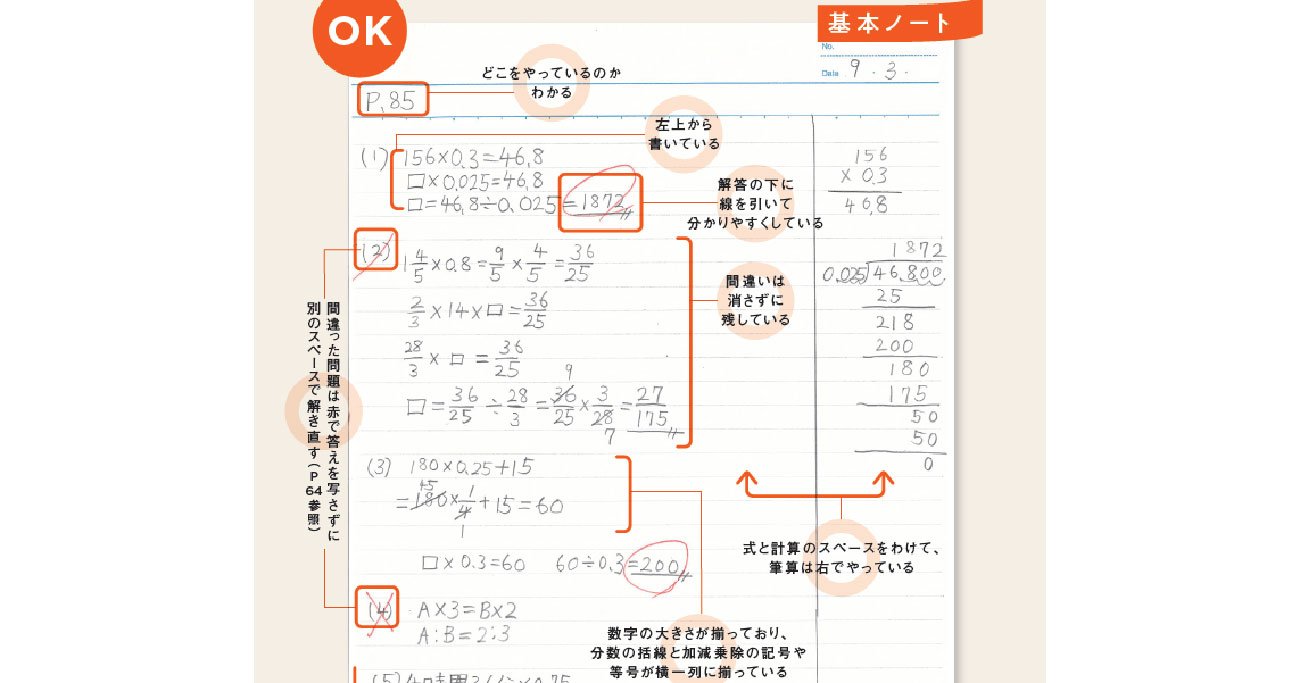 OK
基本ノート
No.
Date 9.3.
どこをやっているのか
わかる
P.85
左上から
書いている
(1) 156×0.3=46.8
□×0.025=46.8
□=46.8÷0.025=1872
解答の下に
線を引いて
分かりやすくしている
156
×0.3
46.8
(2) 1 4/5×0.8=9/5×4/5=36/25
2/3×14×□=36/25
28/3×□=36/25
□=36/25÷28/3=36/25×3/28=27/175
9
7
間違いは
消さずに
残している
1872
0.025)46.800
25
218
200
180
175
50
50
0
間違った問題は赤で答えを写さずに
別のスペースで解き直す(P64参照)
(3) 180×0.25+15
=180×1/4+15=60
45
1
□×0.3=60 60÷0.3=200
式と計算のスペースをわけて、
筆算は右でやっている
(4) A×3=B×2
A:B=2:3
数字の大きさが揃っており、
分数の括線と加減乗除の記号や
等号が横一列に揃っている
(5)